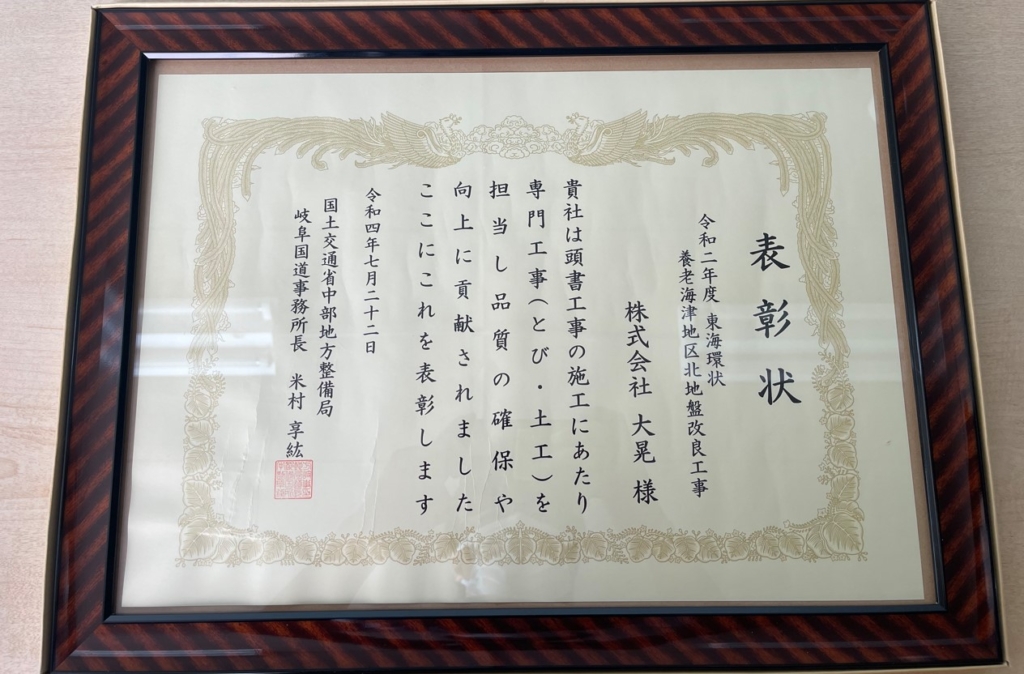 表彰状
令和二年度 東海環状
養老海津地区北地盤改良工事
株式会社 大晃 様
貴社は頭書工事の施工にあたり
専門工事(とび・土工)を
担当し品質の確保や
向上に貢献されました
ここにこれを表彰します
令和四年七月二十二日
国土交通省中部地方整備局
岐阜国道事務所長 米村 享紘